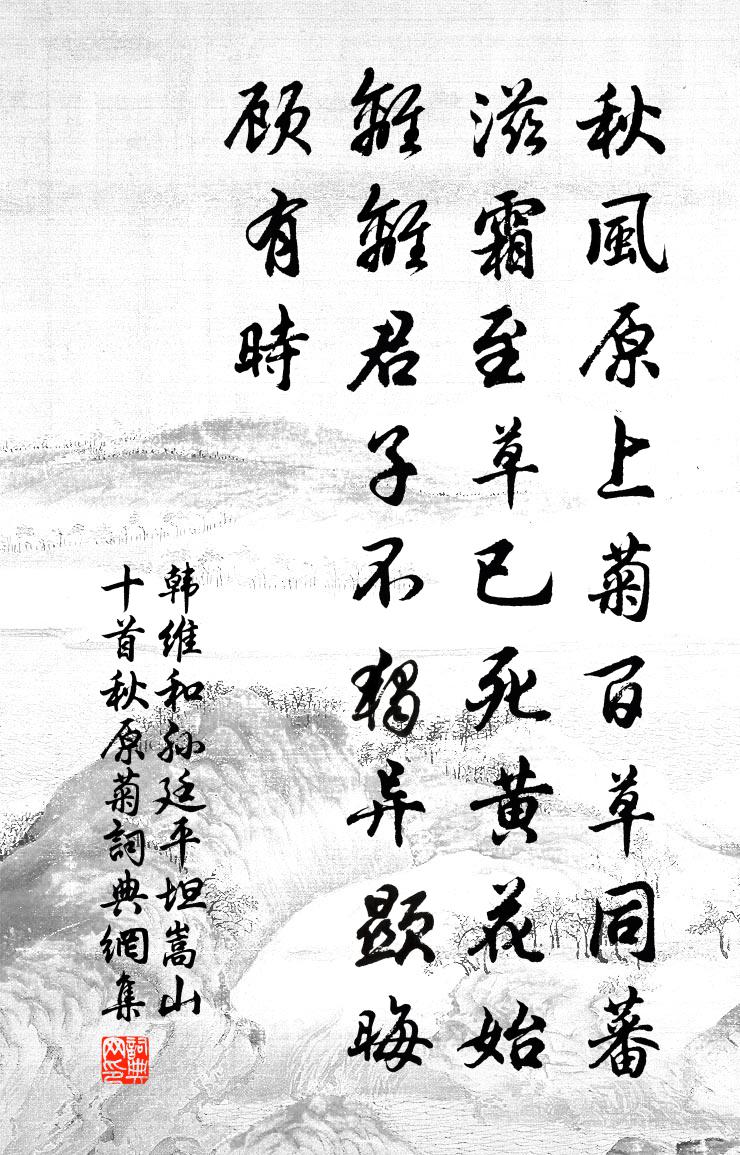 秋風原上菊百草同蕃
滋霜至草已死黄花始
離離君子不獨异顯晦
顧有時
韩維和孙廷平坦嵩山
十首秋原菊詞典網集
詞典
网印